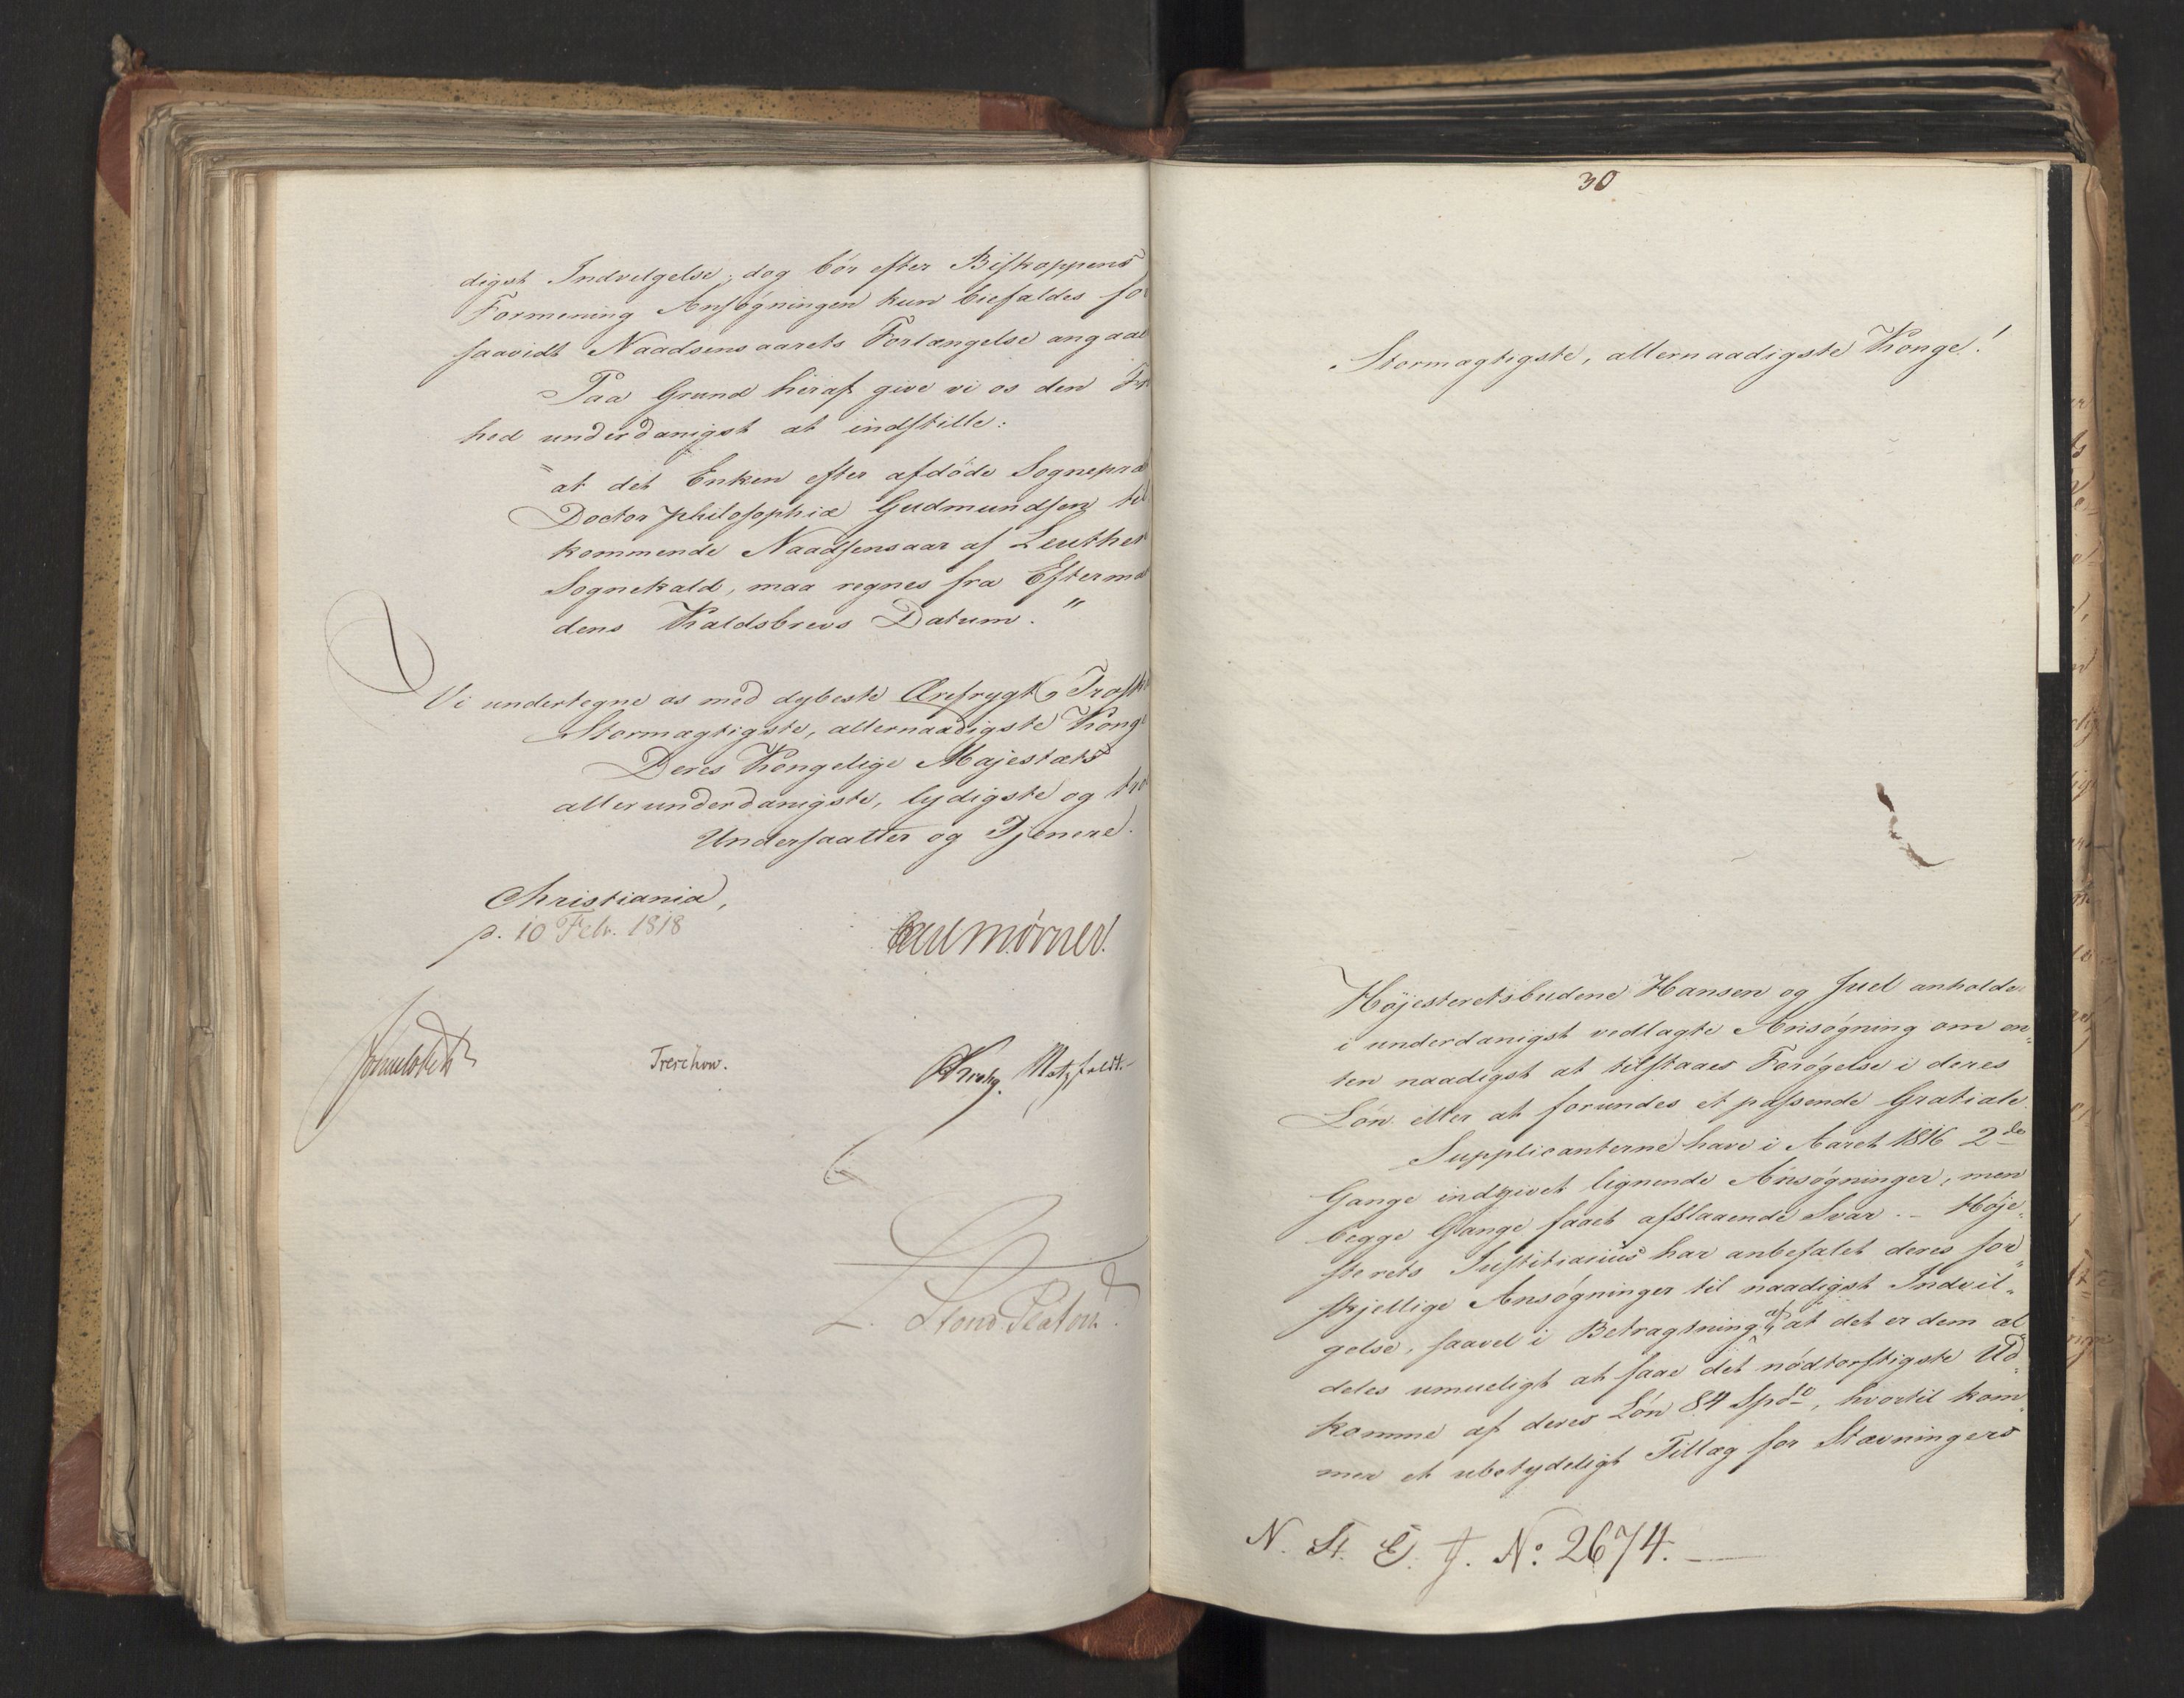 digst Indvilgelse; dog bör efter Biskoppens
Formening Ansøgningen kun biefaldes for
saavidt Naadsensaarets Forlængelse angaae
Paa Grund heraf give vi os den Fri
hed underdanigst at indstille:
"at det Enken efter afdöde Sognepræ
Doctor philosophiæ Gudmundsen til
kommende Naadsensaar af Leuther
Sognekald, maa regnes fra Efterma
dens Kaldsbrevs Datum."
Vi undertegne os med dybeste Ærefrygt, Troskab
Stormagtigste, allernaadigste Konge
Deres Kongelige Majestæts
allerunderdanigste, lydigste og tro
Undersaatter og Tjenere.
Christiania,
p. 10 Febr. 1818
Carl Mörner.
Sommerhielm
Treschow.
Krohg. Motzfeldt.
30
Stormagtigste, allernaadigste Konge!
Højesteretsbudene Hansen og Juel anholde
i underdanigst vedlagte Ansøgning om en-
ten naadigst at tilstaaes Forøgelse i deres
Lön eller at forundes et passende Gratiale.
Supplicanterne have i Aaret 1816 2de
Gange indgivet lignende Ansøgninger, men
begge Gange faaet afslaaende Svar. - Höje-
sterets Justitiarius har anbefalet deres for-
skjellige Ansøgninger til naadigst Indvil-
gelse, saavel i Betragtning af at det er dem al-
deles umueligt at faae det nödtorftigste Ud-
komme af deres Lön 84 Spd, hvortil kom-
mer et ubetydeligt Tillæg for Stævningers
N. St. E. J. No. 2674.